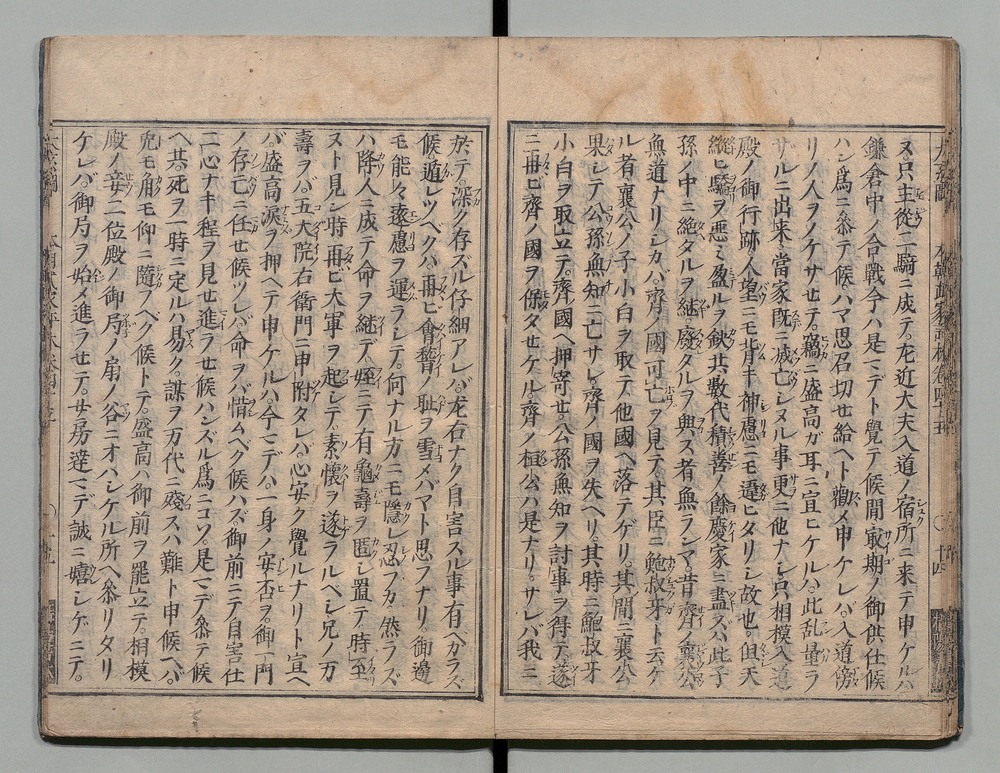 又只主從二騎ニ成テ。左近大夫入道ノ宿所ニ来テ申ケルハ
鎌倉中ノ合戰今ハ是マデト覺テ候間最期ノ御供仕候
ハン爲ニ参テ候ハマ思召切セ給ヘト勸メ申ケレバ入道傍
リノ人ヲノケサセテ。竊ニ盛高ガ耳ニ宣ヒケルハ此乱量ラ
ザルニ出来當家既ニ滅亡シヌル事更ニ他ナシ只相模入道
殿ノ御行跡人望ニモ背キ神慮ニモ違ヒタリシ故也。但天
縱ヒ驕ヲ悪ミ盈ルヲ缺共數代積善ノ餘慶家ニ盡ズハ此子
孫ノ中ニ絶タルヲ継廢タルヲ興ス者無ランヤ昔齊ノ襄公
無道ナリシカバ。齊ノ國可亡ヲ見テ其臣ニ鮑叔牙ト云ケ
ル者襄公ノ子小白ヲ取テ他國ヘ落テゲリ。其間ニ襄公
果シテ公孫無知ニ亡サレ齊ノ國ヲ失ヘリ。其時ニ鮑叔牙
小白ヲ取立テ。齊國ヘ押寄セ公孫無知ヲ討事ヲ得テ遂
ニ再ビ齊ノ國ヲ保タセケル。齊ノ桓公ハ是ナリ。サレバ我ニ
於テ深ク存ズル仔細アレバ左右ナク自害スル事有ベカラズ
候。遁レツベクハ再ビ會稽ノ恥ヲ雪メバヤト思フナリ。御邊
モ能々遠慮ヲ運ラシテ。何ナル方ニモ隱レ忍フカ然ラズ
ハ降人ニ成テ命ヲ継デ。姪ニテ有龜壽ヲ匿シ置テ時至
ヌト見シ時再ビ大軍ヲ起シテ素懐ヲ遂ラルベシ兄ノ万
壽ヲバ五大院右衛門ニ申附タレバ心安ク覺ルナリト宣ヘ
バ。盛高涙ヲ押ヘテ申ケルハ。今マデハ一身ノ安否ヲ御一門
ノ存亡ニ任セ候ツレバ命ヲバ惜ムベク候ハズ御前ニテ自害仕
二心ナキ程ヲ見セ進ラセ候ハンズル爲ニコソ。是マデ参テ候
ヘ共。死ヲ一時ニ定ルハ易ク。謀ヲ万代ニ殘スハ難ト申候ヘバ。
兎モ角モ仰ニ隨フベク候トテ。盛高ハ御前ヲ罷立テ。相模
殿ノ妾二位殿ノ御局ノ扇ノ谷ニオハシケル所ヘ参リタリ
ケレバ。御局ヲ始メ進ラセテ。女房達マデ誠ニ嬉シゲニテ。